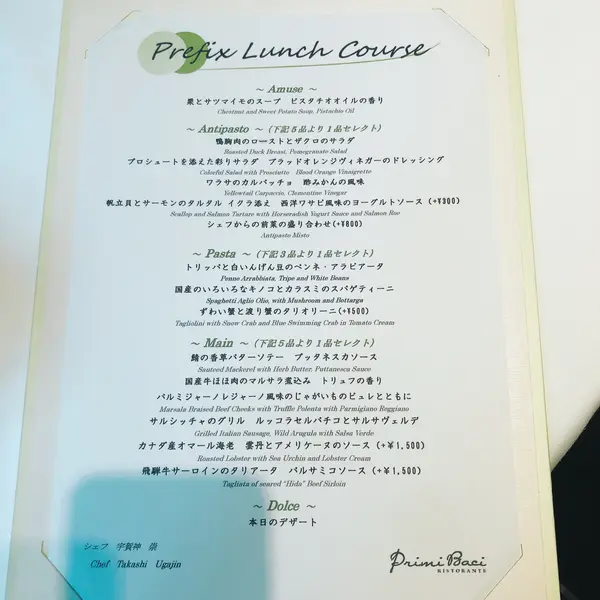 Prefix Lunch Course
~ Amuse ~
栗とサツマイモのスープ ピスタチオオイルの香り
Chestnut and Sweet Potato Soup, Pistachio Oil
~ Antipasto ~ (下記5品より1品セレクト)
鴨胸肉のローストとザクロのサラダ
Roasted Duck Breast, Pomegranate Salad
プロシュートを添えた彩りサラダ ブラッドオレンジヴィネガーのドレッシング
Colorful Salad with Prosciutto Blood Orange Vinaigrette
ワラサのカルパッチョ 酢みかんの風味
Yellowtail Carpaccio, Clementine Vinegar
帆立貝とサーモンのタルタル イクラ添え 西洋ワサビ風味のヨーグルトソース (+¥300)
Scallop and Salmon Tartare with Horseradish Yogurt Sauce and Salmon Roe
シェフからの前菜の盛り合わせ(+¥800)
Antipasto Misto
~ Pasta ~ (下記3品より1品セレクト)
トリッパと白いんげん豆のペンネ・アラビアータ
Penne Arrabbiata, Tripe and White Beans
国産のいろいろなキノコとカラスミのスパゲティーニ
Spaghetti Aglio Olio, with Mushroom and Bottarga
ずわい蟹と渡り蟹のタリオリーニ(+¥500)
Tagliolini with Snow Crab and Blue Swimming Crab in Tomato Cream
~ Main ~ (下記5品より1品セレクト)
鯖の香草バターソテー プッタネスカソース
Sauteed Mackerel with Herb Butter, Puttanesca Sauce
国産牛ほほ肉のマルサラ煮込み トリュフの香り
パルミジャーノレジャーノ風味のじゃがいものピュレとともに
Marsala Braised Beef Cheeks with Truffle Polenta with Parmigiano Reggiano
サルシッチャのグリル ルッコラセルバチコとサルサヴェルデ
Grilled Italian Sausage, Wild Arugula with Salsa Verde
カナダ産オマール海老 雲丹とアメリケーヌのソース (+¥1,500)
Roasted Lobster with Sea Urchin and Lobster Cream
飛騨牛サーロインのタリアータ バルサミコソース (+¥1,500)
Tagliata of seared "Hida" Beef Sirloin
~ Dolce ~
本日のデザート
シェフ 宇賀神 崇
Chef Takashi Ugajin
Primi Baci
RISTORANTE